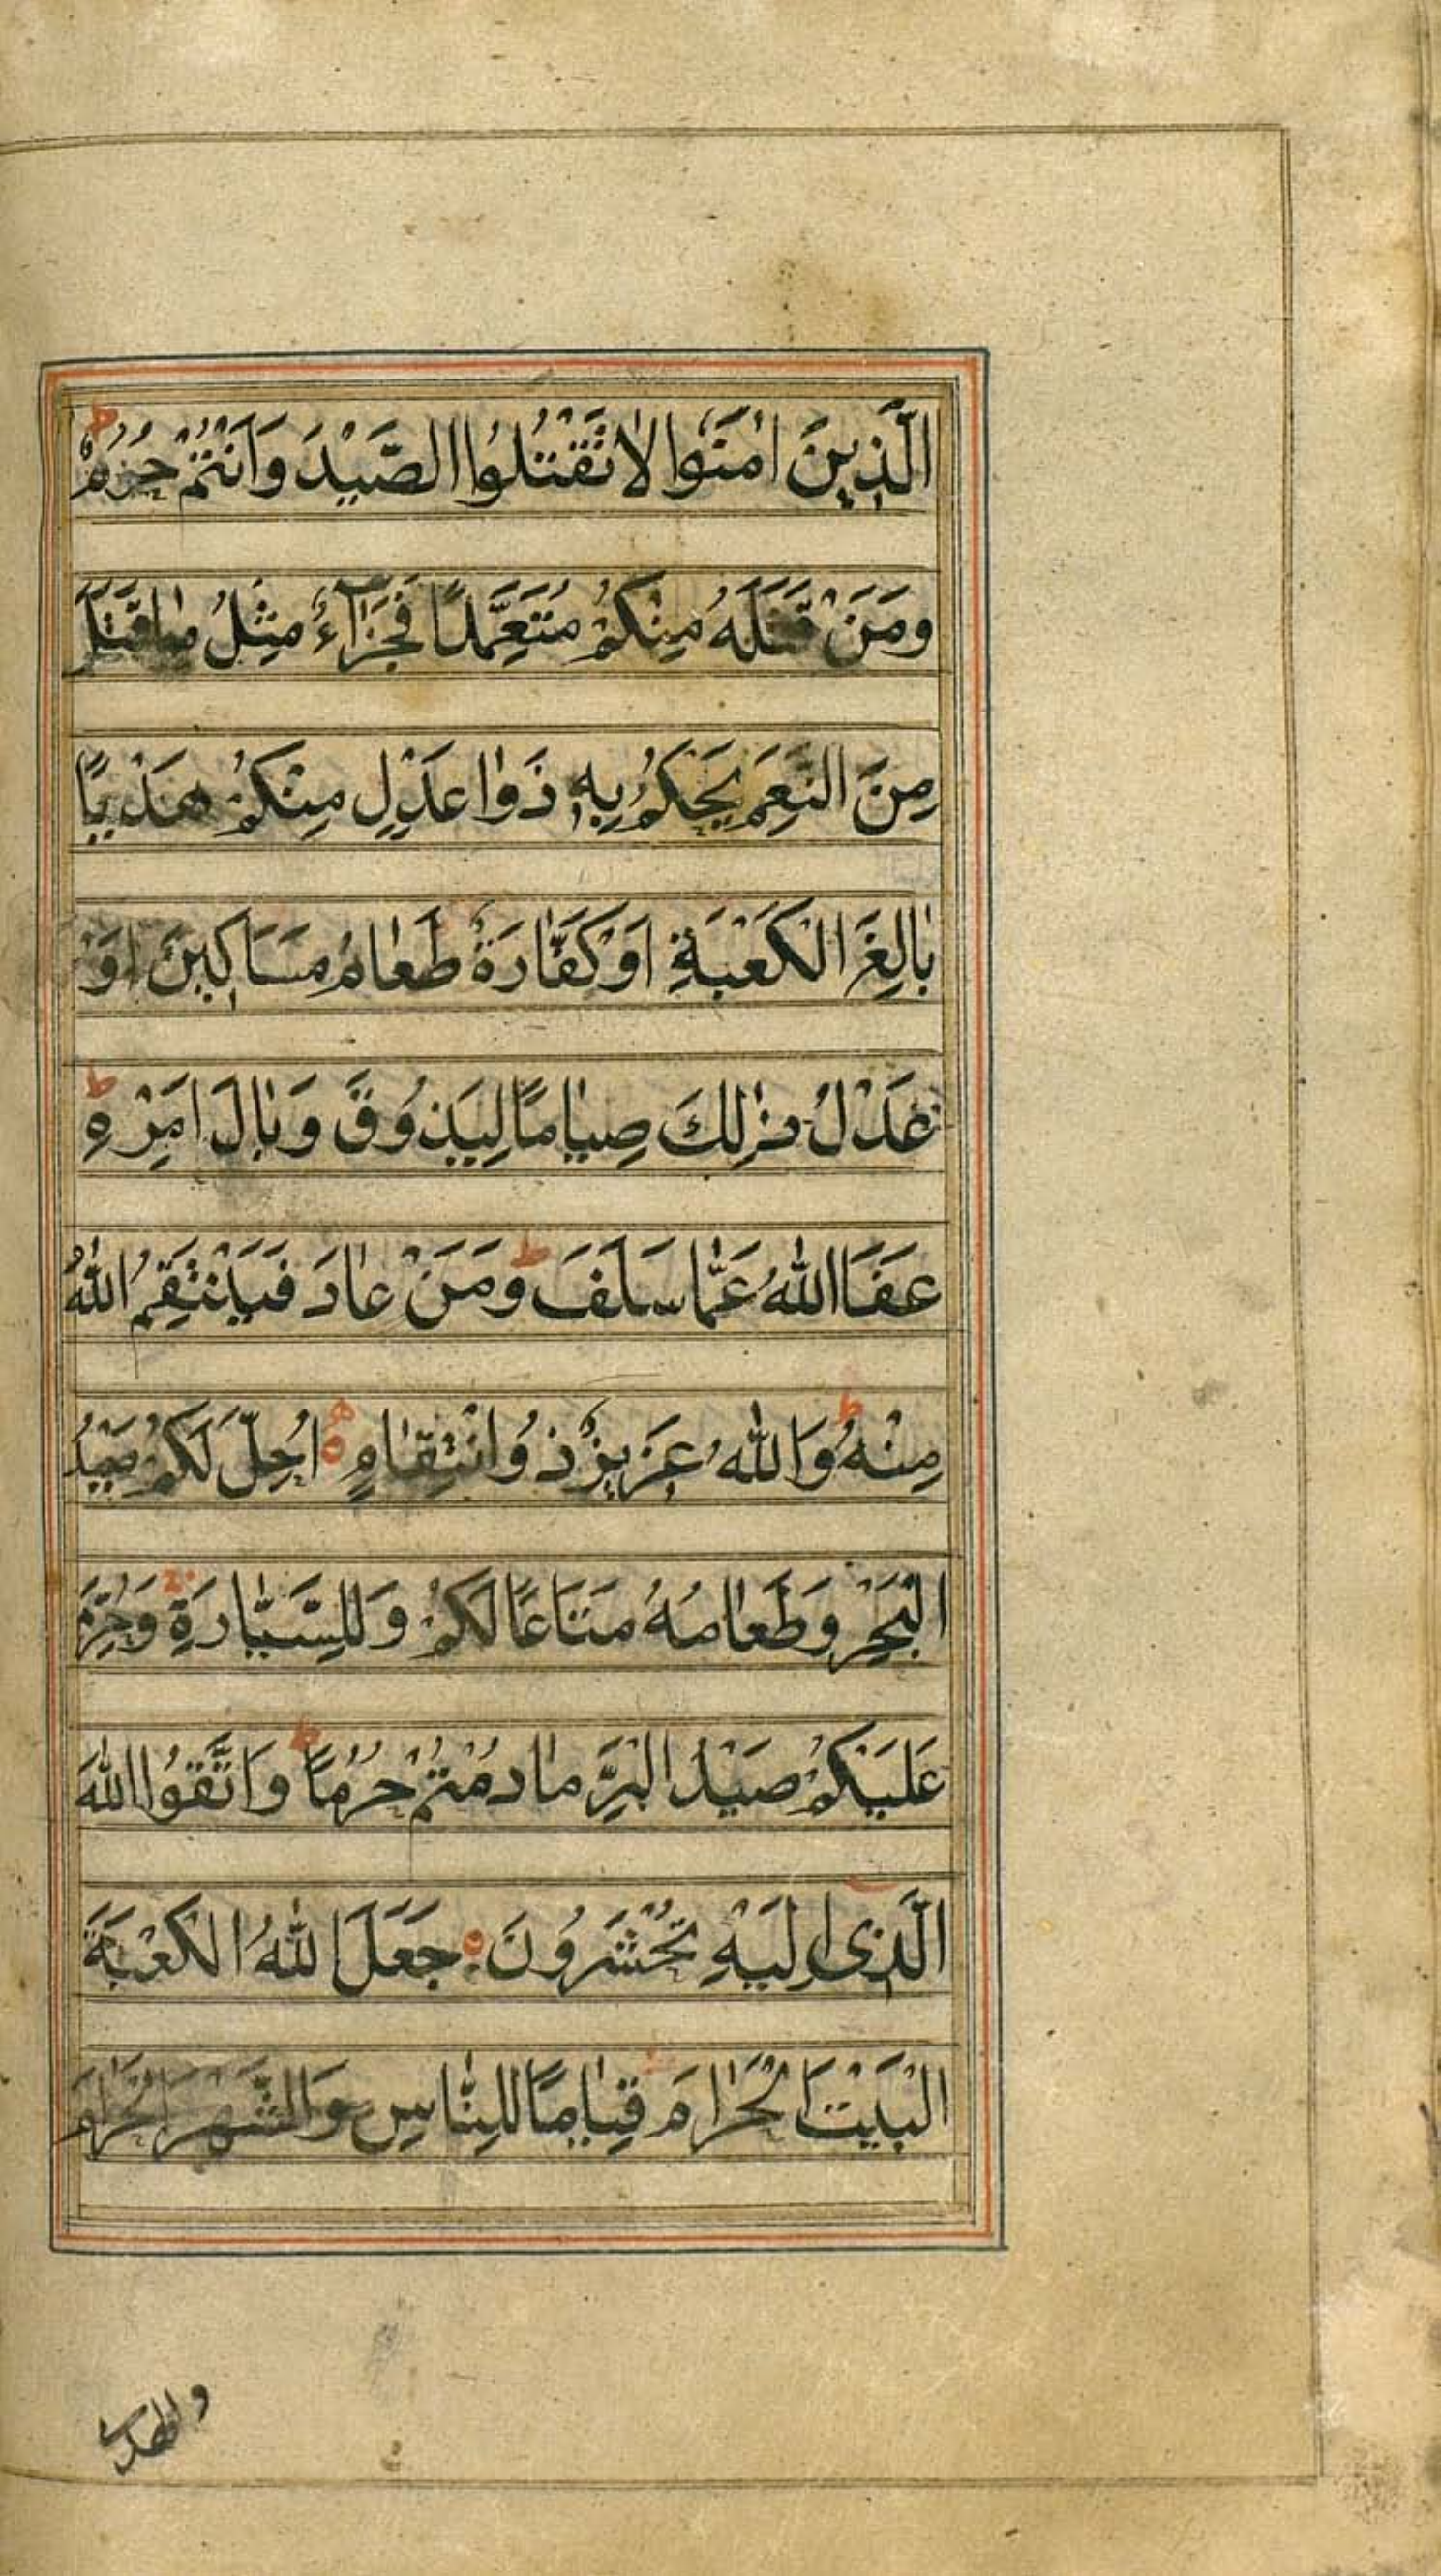 الَّذِينَ اٰمَنُوا لَا تَقْتُلُوا الصَّيْدَ وَاَنْتُمْ حُرُمٌ ط
وَمَنْ قَتَلَهُ مِنْكُمْ مُتَعَمِّدًا فَجَزَآءٌ مِثْلُ مٰا قَتَلَ
مِنَ النَّعَمِ يَحْكُمُ بِهٖ ذَوٰا عَدْلٍ مِنْكُمْ هَدْيًا
بٰالِغَ الْكَعْبَةِ اَوْ كَفّٰارَةٌ طَعٰامُ مَسَاكِينَ اَوْ
عَدْلُ ذٰلِكَ صِيٰامًا لِيَذُوقَ وَبٰالَ اَمْرِهٖ ط
عَفَا اللّٰهُ عَمّٰا سَلَفَ ط وَمَنْ عٰادَ فَيَنْتَقِمُ اللّٰهُ
مِنْهُ ط وَاللّٰهُ عَزِيزٌ ذُو انْتِقٰامٍ ه اُحِلَّ لَكُمْ صَيْدُ
الْبَحْرِ وَطَعٰامُهُ مَتَاعًا لَكُمْ وَلِلسَّيّٰارَةِ وَحُرِّمَ
عَلَيْكُمْ صَيْدُ الْبَرِّ مٰا دُمْتُمْ حُرُمًا ط وَاتَّقُوا اللّٰهَ
الَّذِى اِلَيْهِ تُحْشَرُونَ ه جَعَلَ اللّٰهُ الْكَعْبَةَ
الْبَيْتَ الْحَرٰامَ قِيٰامًا لِلنّٰاسِ وَالشَّهْرَ الْحَرٰامَ
والهدى